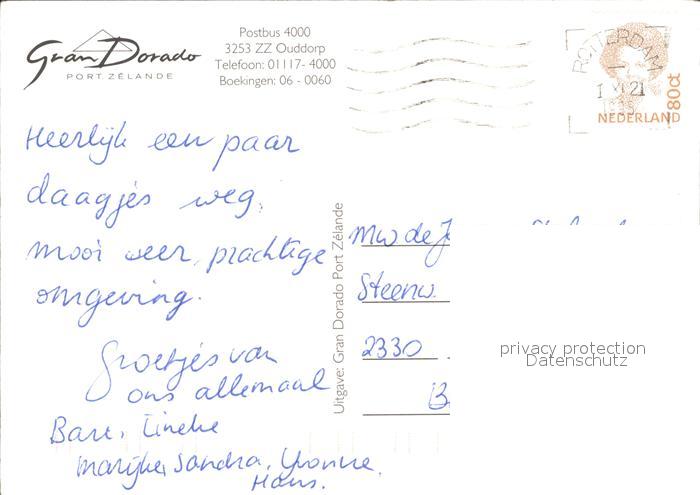 Gran Dorado
PORT ZÉLANDE
Postbus 4000
3253 ZZ Ouddorp
Telefoon: 01117- 4000
Boekingen: 06 - 0060
ROTTERDAM
21
80ct
NEDERLAND
Heerlijk een paar
daagjes weg.
mooi weer, prachtige
omgeving.
Groetjes van
ons allemaal
Bart, Tineke
Marijke, Sandra, Yvonne.
Hans.
Uitgave: Gran Dorado Port Zélande
Mw de J
Steenw.
2330
B
privacy protection
Datenschutz